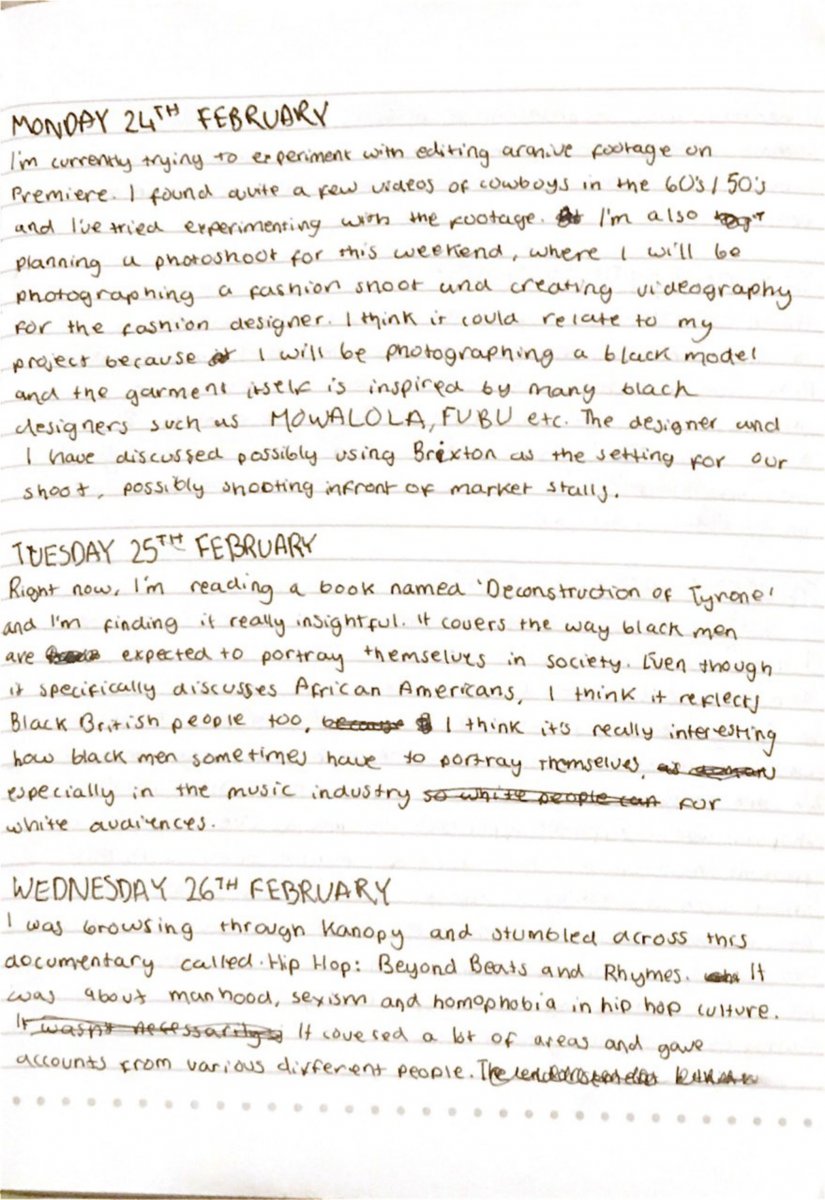 MONDAY 24TH FEBRUARY
I'm currently trying to experiment with editing archive footage on
Premiere. I found quite a few videos of cowboys in the 60's / 50's
and I've tried experimenting with the footage. I'm also
planning a photoshoot for this weekend, where I will be
photographing a fashion shoot and creating videography
for the fashion designer. I think it could relate to my
project because I will be photographing a black model
and the garment itself is inspired by many black
designers such as MOWALOLA, FUBU etc. The designer and
I have discussed possibly using Brixton as the setting for our
shoot, possibly shooting infront of market stalls.
TUESDAY 25TH FEBRUARY
Right now, I'm reading a book named 'Deconstruction of Tyrone'
and I'm finding it really insightful. It covers the way black men
are expected to portray themselves in society. Even though
it specifically discusses African Americans, I think it reflects
Black British people too, because I think it's really interesting
how black men sometimes have to portray themselves,
especially in the music industry so white people can for
white audiences.
WEDNESDAY 26TH FEBRUARY
I was browsing through Kanopy and stumbled across this
documentary called Hip Hop: Beyond Beats and Rhymes. It
was about manhood, sexism and homophobia in hip hop culture.
It wasn't necessarily It covered a lot of areas and gave
accounts from various different people.